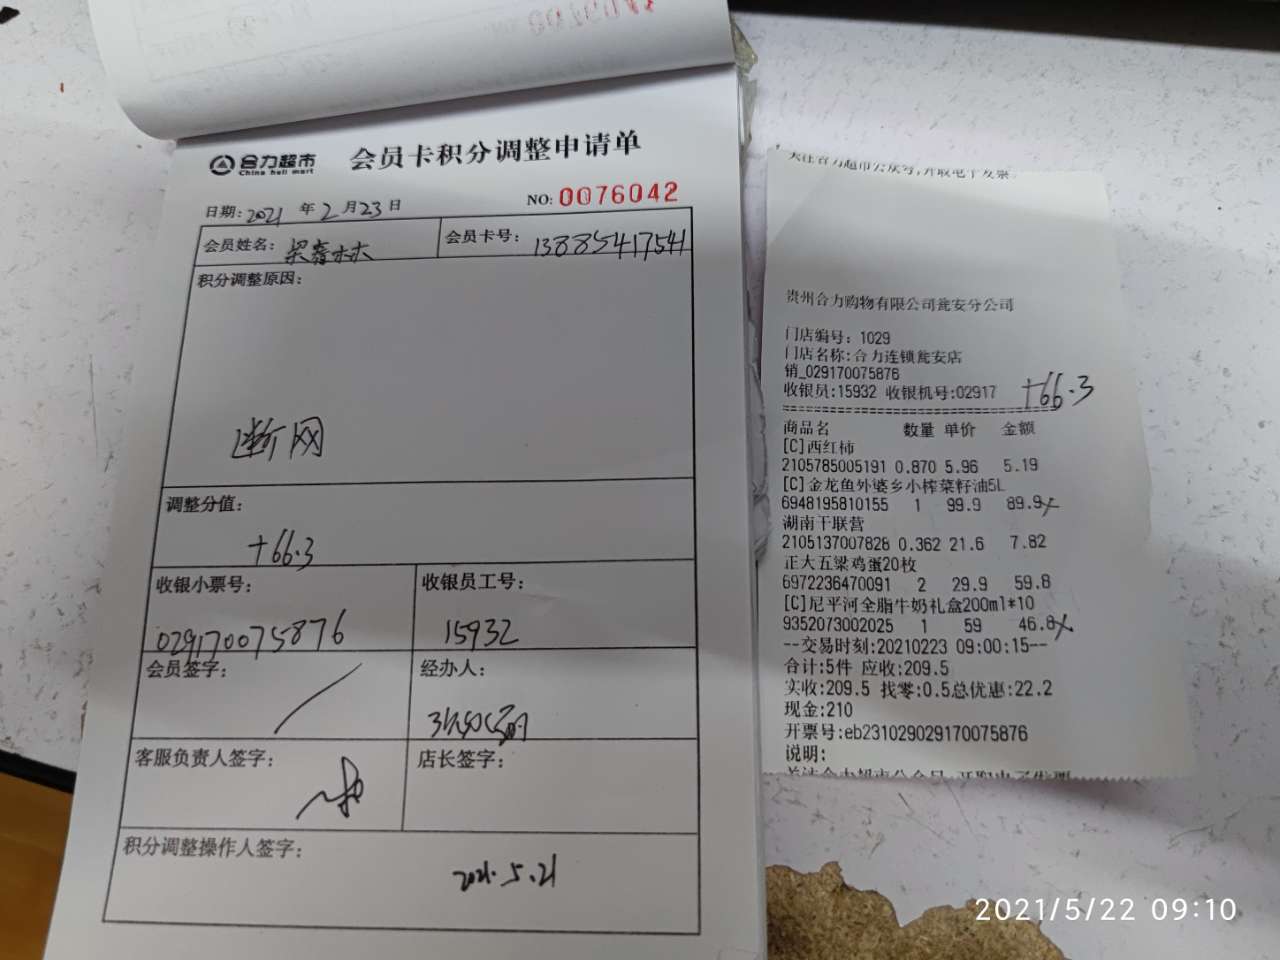 合力超市
China heli mart
会员卡积分调整申请单
日期: 2021 年 2 月 23 日
NO: 0076042
会员姓名:
会员卡号: 13885417541
积分调整原因:
断网
调整分值:
+66.3
收银小票号:
029170075876
收银员工号:
15932
会员签字:
经办人:
客服负责人签字:
店长签字:
积分调整操作人签字:
2021.5.21
关注合力超市公众号,开取电子发票
贵州合力购物有限公司瓮安分公司
门店编号: 1029
门店名称:合力连锁瓮安店
销_029170075876
收银员:15932 收银机号:02917
+66.3
商品名 数量 单价 金额
[C]西红柿
2105785005191 0.870 5.96 5.19
[C]金龙鱼外婆乡小榨菜籽油5L
6948195810155 1 99.9 89.9
湖南干联营
2105137007828 0.362 21.6 7.82
正大五梁鸡蛋20枚
6972236470091 2 29.9 59.8
[C]尼平河全脂牛奶礼盒200ml*10
9352073002025 1 59 46.8
--交易时刻:20210223 09:00:15--
合计:5件 应收:209.5
实收:209.5 找零:0.5总优惠:22.2
现金:210
开票号:eb231029029170075876
说明:
关注合力超市公众号,开取电子发票
2021/5/22 09:10